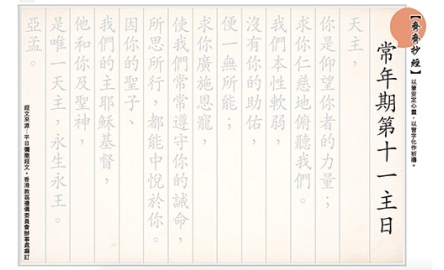 【齊齊抄經】
以筆安定心靈，以習字化作祈禱。
常年期第十一主日
天主，
你是仰望你者的力量；
求你仁慈地俯聽我們。
我們本性軟弱，
沒有你的助佑，
便一無所能；
求你廣施恩寵，
使我們常常遵守你的誡命，
所思所行，都能中悅於你。
因你的聖子、
我們的主耶穌基督，
他和你及聖神，
是唯一天主，永生永王。
亞孟。
經文來源：平日彌撒經文，香港教區禮儀委員會辦事處編訂